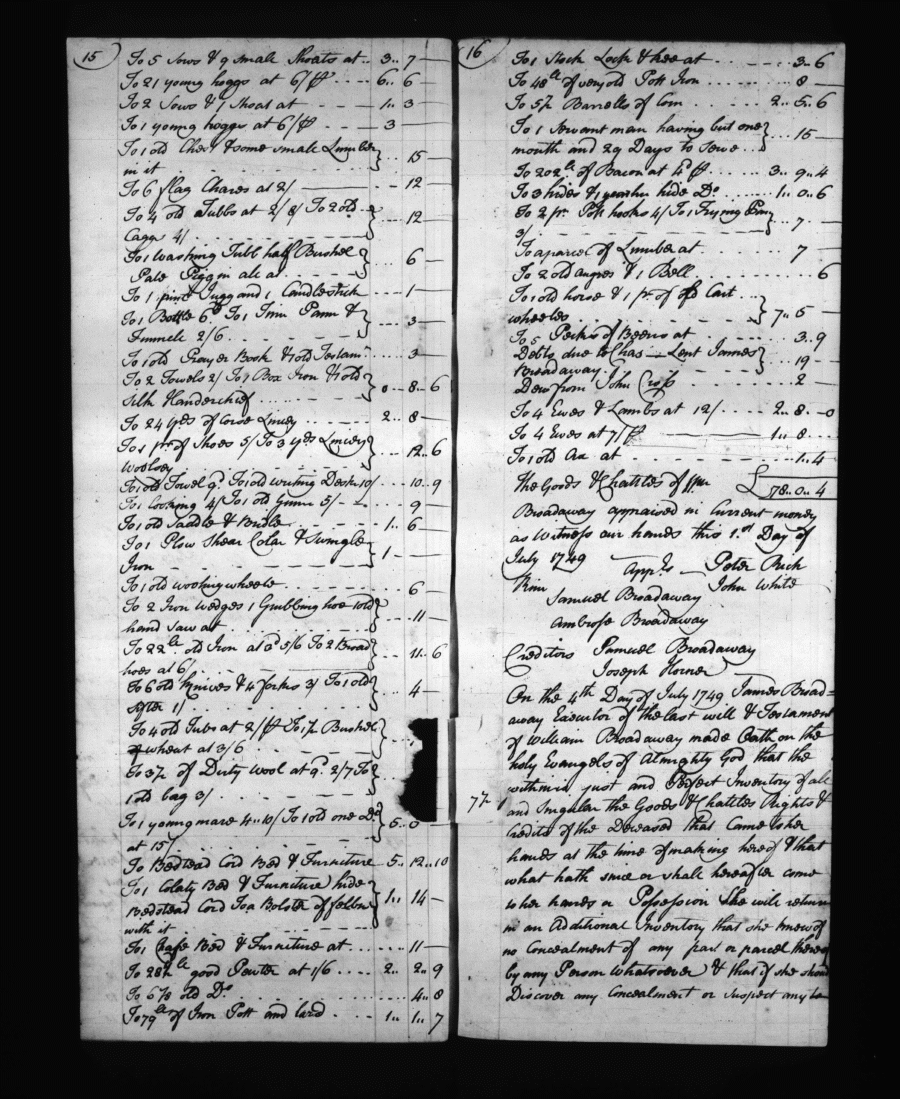 15
To 5 Sows & 9 small Shoats at .. 3 .. 7 —
To 21 young hoggs at 6/ ⅌ .... 6 .. 6 —
To 2 Sows & 1 Shoat at ---- 1 .. 3 —
To 1 young hoggs at 6/ ⅌ --- 3 —
To 1 old Chest & some small Lumber
in it .......... 15 —
To 6 flag Chares at 2/ ——— -- 12 —
To 4 old Tubbs at 2/8/ To 2 old
Caggs 4/ ........ 12 —
To 1 Washing Tubb half Bushel
Pale Piggin all at ..... 6 —
To 1 pint Jugg and 1 Candlestick .... 1 —
To 1 Bottle 6d To 1 Tinn Pann &
Funnele 2/6 ........ 3 —
To 1 old Prayer Book & old Testamt ... 3 —
To 2 Towels 2/ To 1 Box Iron & old
Silk Handerchief ....... 0 .. 8 .. 6
To 24 yds of Corse Lincey .... 2 .. 8 —
To 1 pr. of Shoes 5/ To 3 yds Lincey
Woolsey ........ 12 .. 6
To 1 old Towel 9d To 1 old writing Desk 10/ .. 10 .. 9
To 1 looking 4/ To 1 old Gunn 5/ -- 9 —
To 1 old Saddle & Bridle ..... 1 .. 6 —
To 1 Plow Shear Colar & Swingle
Iron --------- 1 —
To 1 old wooling wheele ..... 6 —
To 2 Iron Wedges 1 Grubbing hoe 1 old
hand saw at ......... 11 —
To 22 lb old Iron at a 5/6 To 2 Broad
hoes at 6/ ........ 11 .. 6
To 6 old Knives & 4 forks 3/ To 1 old
Sifter 1/ ......... 4 —
To 4 old Tubs at 2/ ⅌ To 1½ Bushel
of wheat at 3/6 .......
To 3½ of Durty Wool at 9d 2/7 To
1 old bag 3/ ........
To 1 young mare 4..10/ To 1 old one Do
at 15/ ......... 5 .. 0
To Bedstead Cord Bed & Furniture .. 5 .. 12 .. 10
To 1 Bed & Furniture hide
Bedstead Cord Bolster of
with it ........ 1 .. 14 —
To 1 Chafe Bed & Furniture at .... 11 —
To 28½ lb good Pewter at 1/6 .... 2 .. 2 .. 9
To 6 ⅞ old Do ........ 4 .. 8
To 79 lb of Iron Pott and lard ... 1 .. 1 .. 7
16
To 1 Stock Lock & kee at ...... 3 .. 6
To 48 lb of very old Pott Iron ..... 8 —
To 5½ Barrells of Corn ..... 2 .. 5 .. 6
To 1 Servant man having but one
month and 29 Days to Serve ... 15 —
To 202 lb of Bacon at 4d ⅌ ... 3 .. 9 .. 4
To 3 hides & 1 yearlin hide Do ... 1 .. 0 .. 6
To 2 pr. Pott hooks 4/ To 1 Frying Pan
3/ --------- 7 —
To a parcel of Lumber at 7 —
To 2 old augres & 1 Bell ...... 6
To 1 old horse & 1 pr. of old Cart
wheeles .......... 7 .. 5 —
To 5 Pecks of Beens at ..... 3 .. 9
Debts due to Chas — Lent James
Broadaway ........ 19 —
Dew from John Cross ...... 2 —
To 4 Ewes & Lambs at 12/ .... 2 .. 8 .. 0
To 4 Ewes at 7/ ⅌ ——— 1 .. 8 ...
To 1 old Ax at -------- 1 .. 4
The Goods & Chatiles of Wm £78 .. 0 .. 4
Broadaway appraised in Current money
as Witness our hands this 1st Day of
July 1749 Apprs. Peter Rich
Kinn John White
Samuel Broadaway
Ambrose Broadaway
Creditors Samuel Broadaway
Joseph Horner
On the 4th Day of July 1749 James Broad=
away Executor of the last will & Testament
of William Broadaway made Oath on the
holy Evangels of Almighty God that the
within is just and Perfect Inventory of all
77
and Singular the Goods & Chatiles Rights &
Credits of the Deceased that Came to her
hands at the time of making hereof & that
what hath since or shall hereafter come
to her hands or Possession She will return
in an Additional Inventory that she knew of
no Concealment of any part or parcel thereof
by any Person Whatsoever & that if she shou
Discover any Concealment or suspect any to